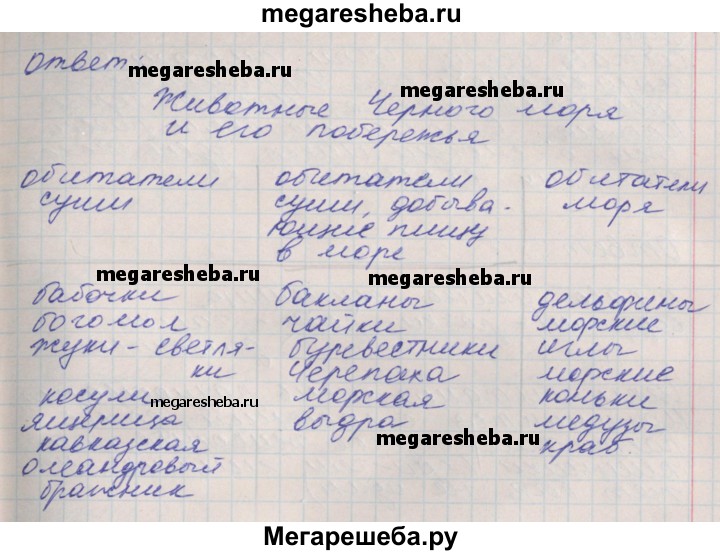 megaresheba.ru
ответ:
megaresheba.ru
megaresheba.ru
Животные Черного моря
и его побережья
обитатели
суши
обитатели
суши, добыва-
ющие пищу
в море
обитатели
моря
megaresheba.ru
megaresheba.ru
бабочки
богомол
жуки-светля-
ки
косули
ящерица
кавказская
олеандровый
бражник
megaresheba.ru
бакланы
чайки
буревестники
черепаха
морская
выдра
megaresheba.ru
дельфины
морские
иглы
морские
коньки
медузы
краб.
Мегарешеба.ру